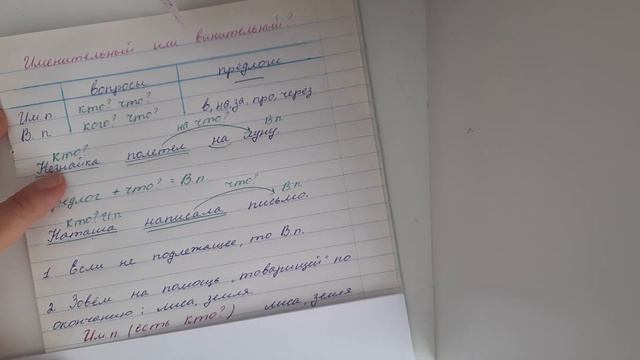 Именительный или винительный?
вопросы предлоги
Им.п. кто? что?
В.п. кого? что? в, на, за, про, через
кто? на что? В.п.
Незнайка полетел на Луну.
предлог + что? = В.п.
кто? И.п. что? В.п.
Наташа написала письмо.
1 Если не подлежащее, то В.п.
2. Зовём на помощь „товарищей" по
окончанию: лиса, земля
Им.п (есть кто?) лиса, земля